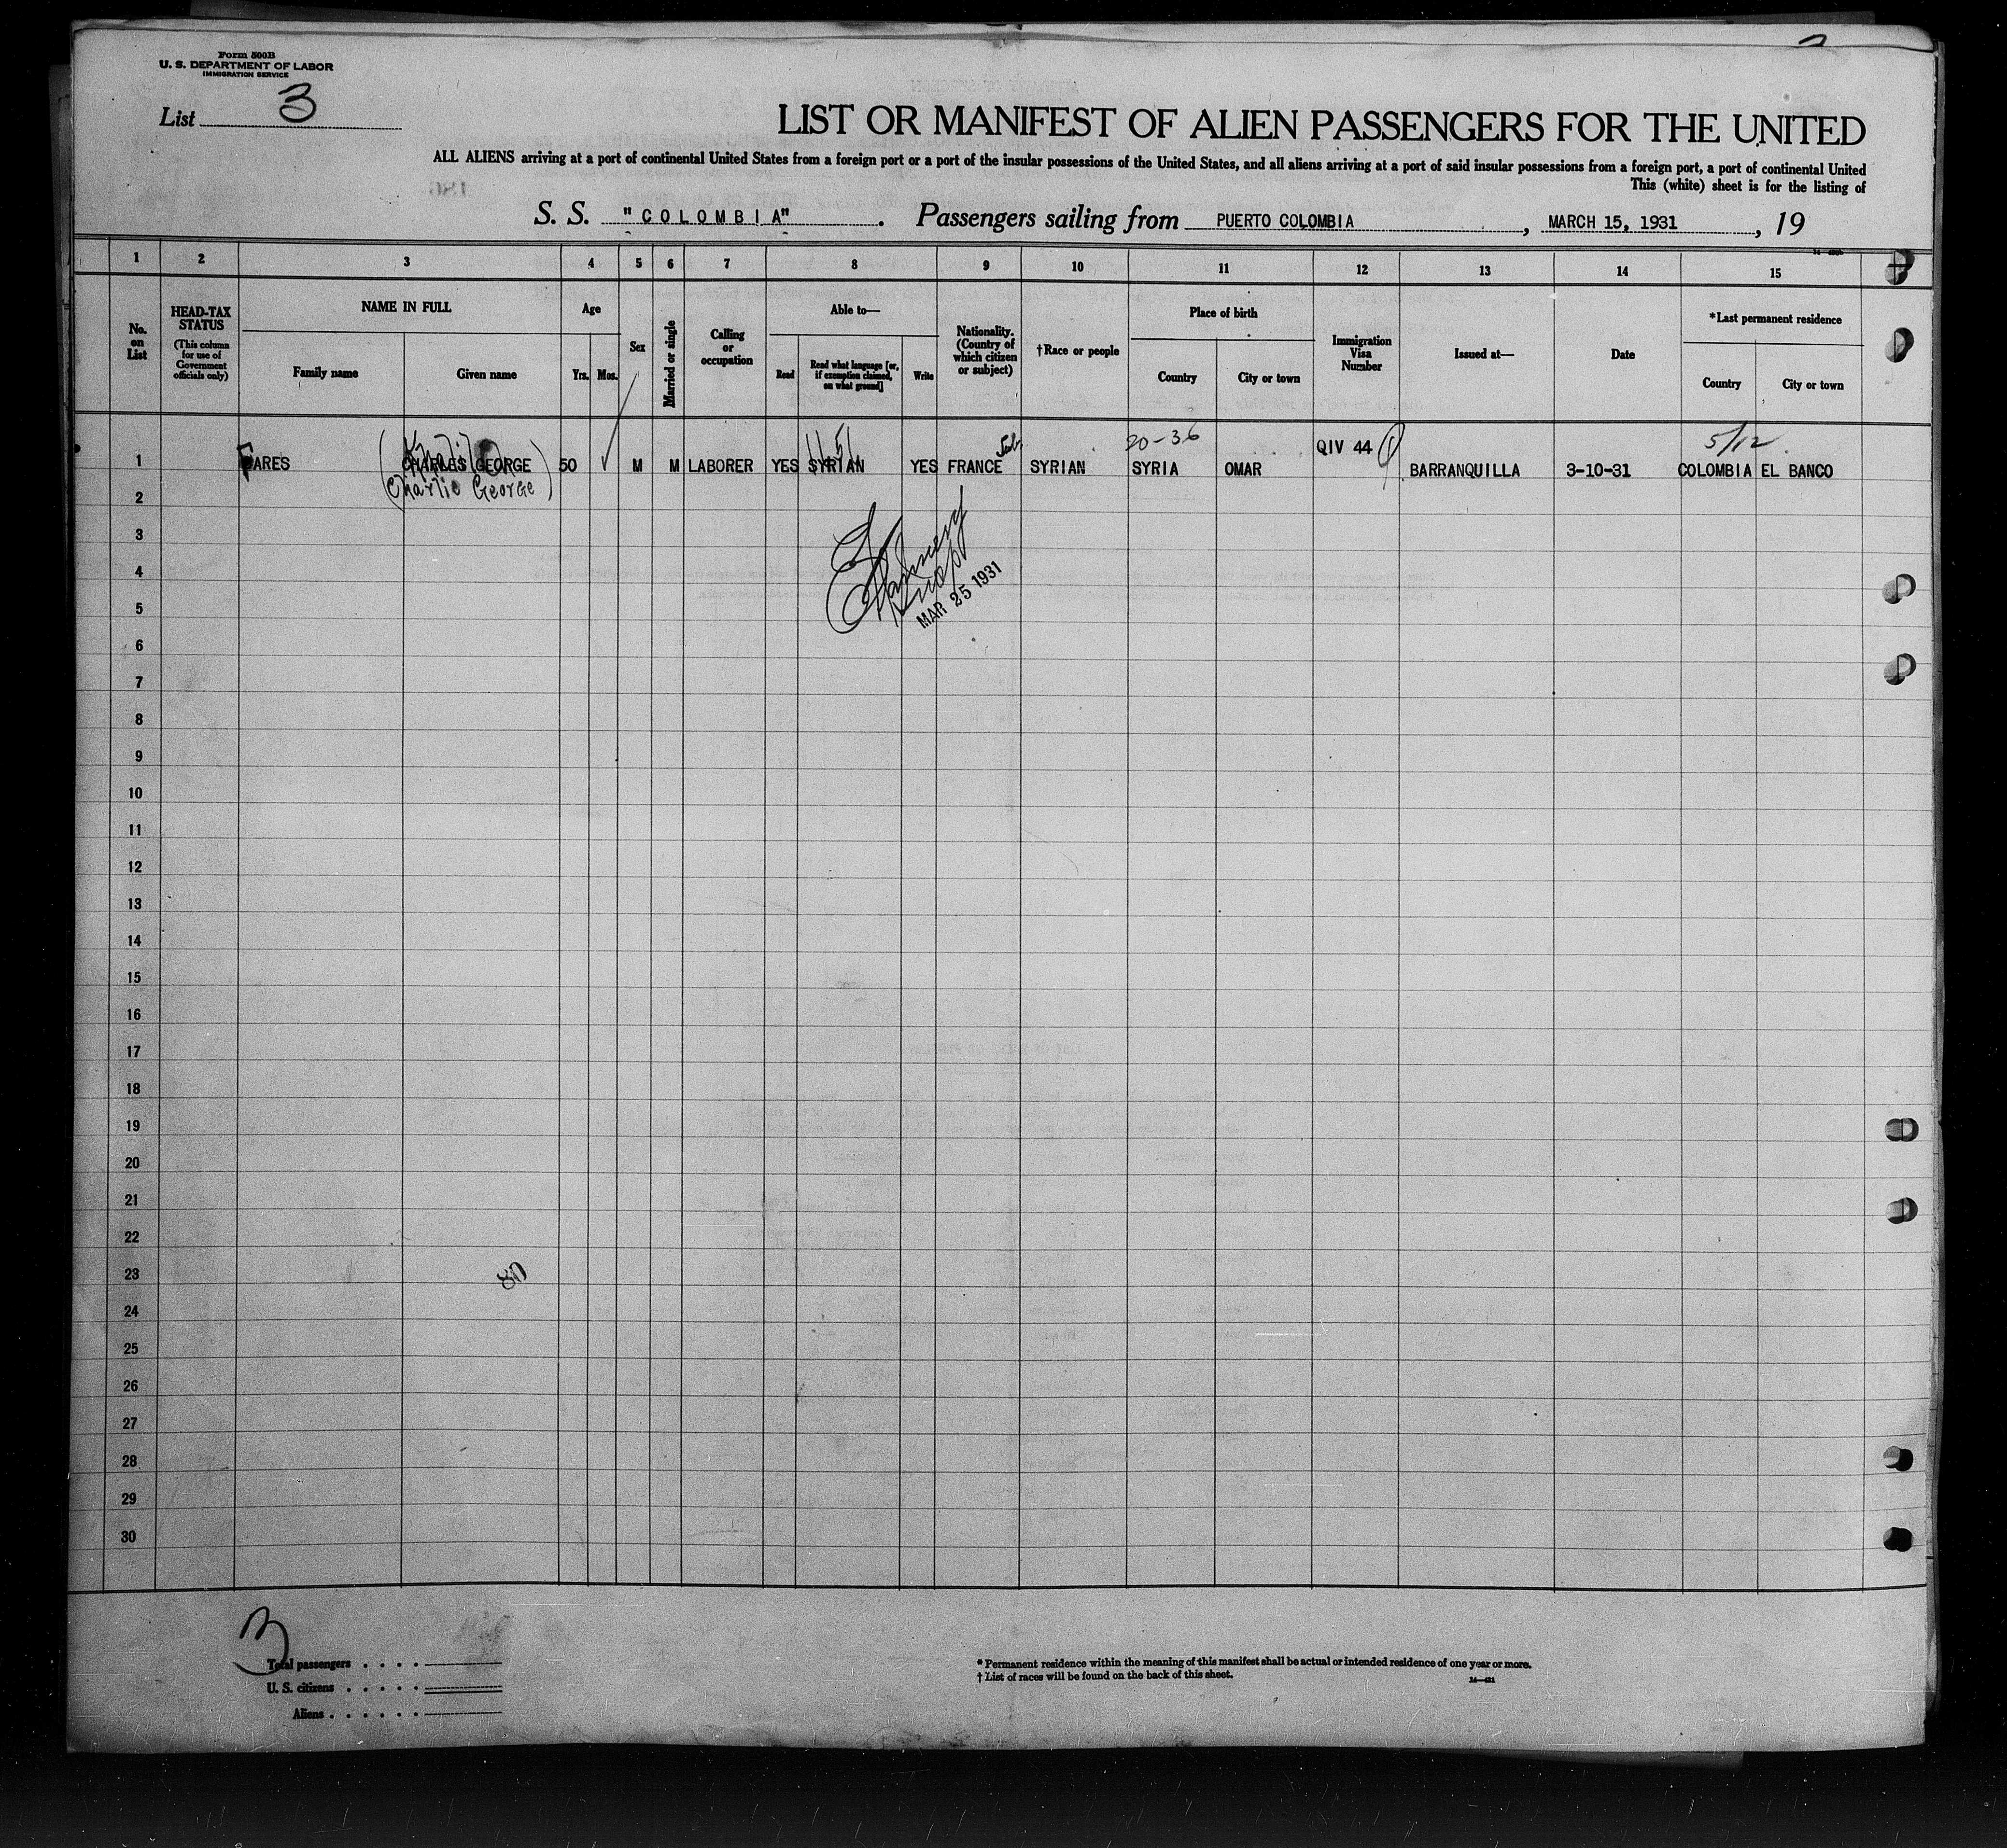 Form 500B
U. S. DEPARTMENT OF LABOR
IMMIGRATION SERVICE
List 3
LIST OR MANIFEST OF ALIEN PASSENGERS FOR THE UNITED
ALL ALIENS arriving at a port of continental United States from a foreign port or a port of the insular possessions of the United States, and all aliens arriving at a port of said insular possessions from a foreign port, a port of continental United
This (white) sheet is for the listing of
S. S. "COLOMBIA". Passengers sailing from PUERTO COLOMBIA, MARCH 15, 1931, 19
1 2 3 4 5 6 7 8 9 10 11 12 13 14 15
No. on List
HEAD-TAX STATUS
(This column for use of Government officials only)
NAME IN FULL
Family name Given name
Age
Yrs. Mos.
Sex
Married or single
Calling or occupation
Able to—
Read
Read what language [or, if exemption claimed, on what ground]
Write
Nationality. (Country of which citizen or subject)
†Race or people
Place of birth
Country City or town
Immigration Visa Number
Issued at—
Date
*Last permanent residence
Country City or town
20-36 5/12
1 FARES CHARLES GEORGE 50 M M LABORER YES SYRIAN YES FRANCE SYRIAN SYRIA OMAR QIV 44 BARRANQUILLA 3-10-31 COLOMBIA EL BANCO
(Charlie George)
2
3
4
5
MAR 25 1931
6
7
8
9
10
11
12
13
14
15
16
17
18
19
20
21
22
23
80
24
25
26
27
28
29
30
3
Total passengers . . . .
U. S. citizens . . . . .
Aliens . . . . . .
* Permanent residence within the meaning of this manifest shall be actual or intended residence of one year or more.
† List of races will be found on the back of this sheet.